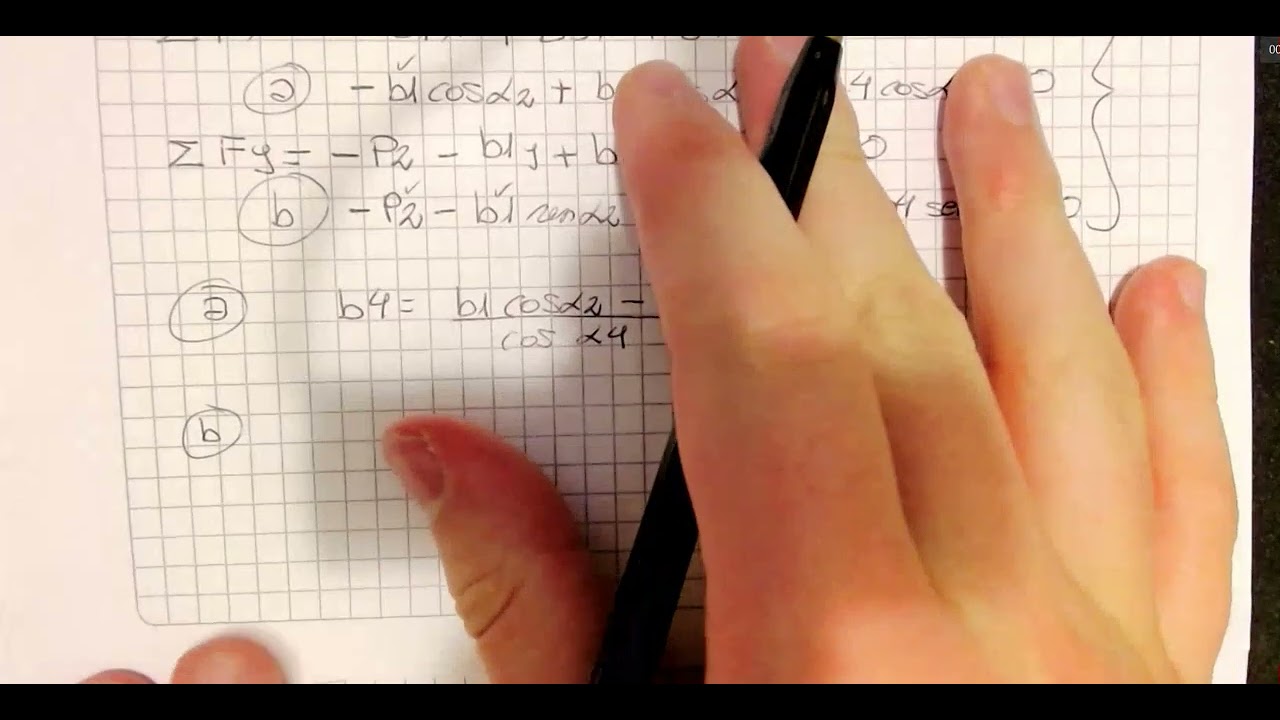 a - b1 cosα2 + b α 4 cosα 0
Σ Fy = - P2 - b1y + b 0
b - P2 - b1 senα2 4 se 0
a b4 = b1 cosα2 -
cos α4
b
00